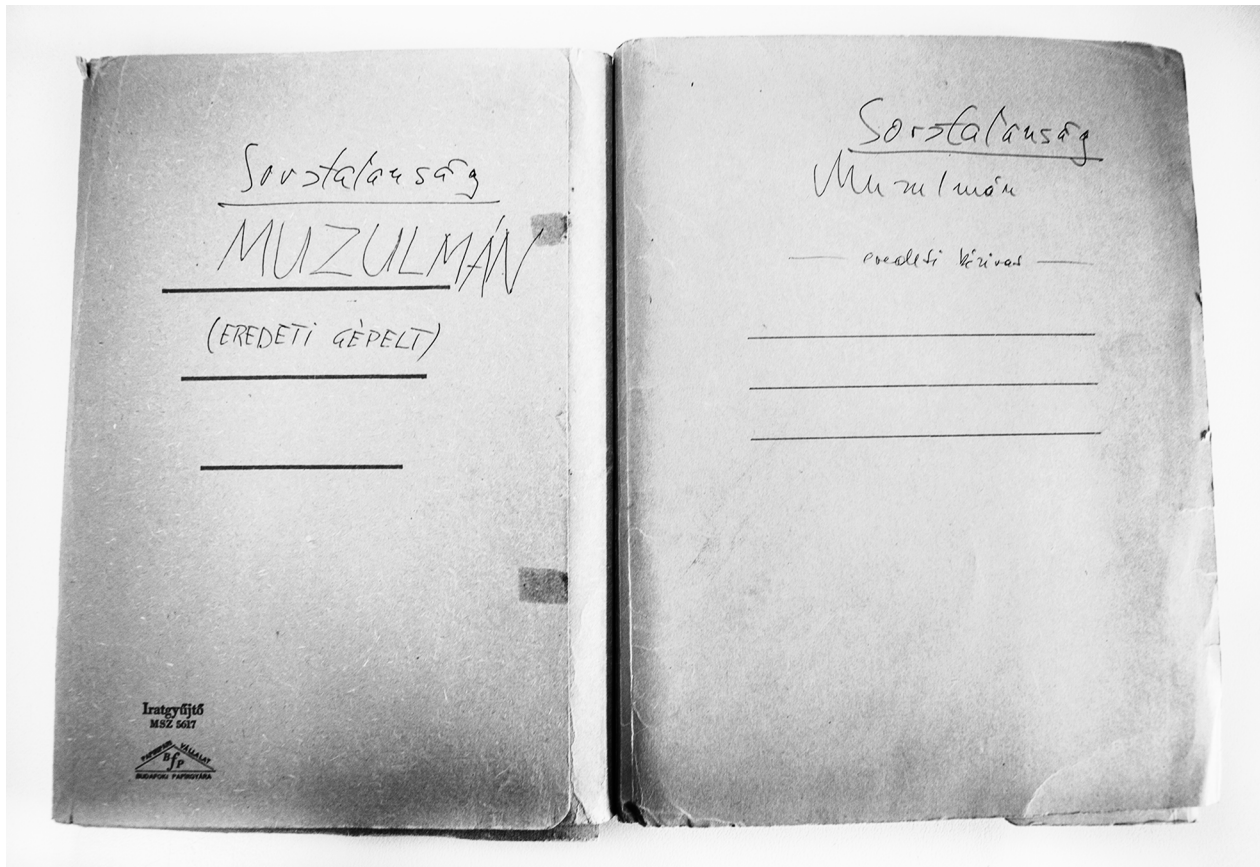 Sorstalanság
MUZULMÁN
(EREDETI GÉPELT)
Iratgyűjtő
MSZ 5617
PAPÍRIPARI VÁLLALAT
BfP
BUDAFOKI PAPÍRGYÁRA
Sorstalanság
Muzulmán
eredeti kézirat